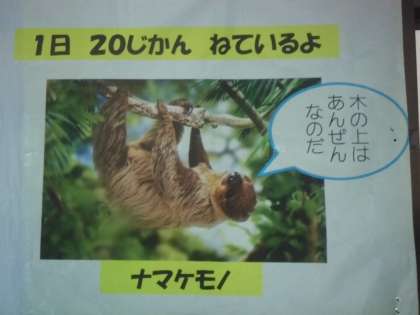 1日 20じかん ねているよ
木の上は
あんぜん
なのだ
ナマケモノ